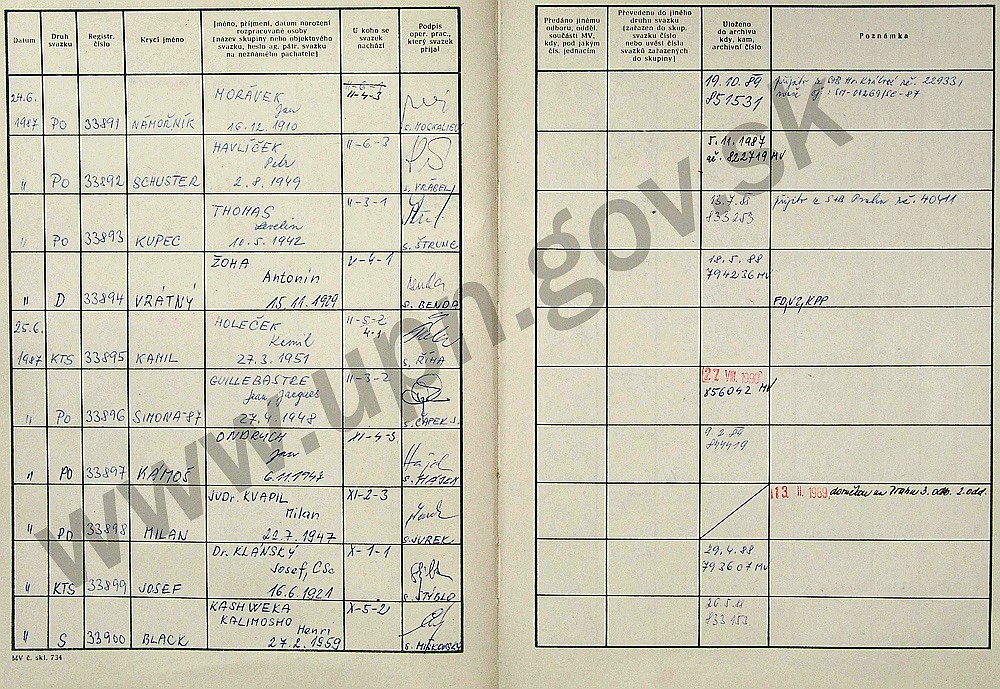 Datum
Druh svazku
Registr. číslo
Krycí jméno
Jméno, příjmení, datum narození
rozpracované osoby
(název skupiny nebo objektového
svazku, heslo ag. pátr. svazku
na neznámého pachatele)
U koho se
svazek
nachází
Podpis
oper. prac.,
který svazek
přijal
Předáno jinému
odboru, odděl.
součásti MV,
kdy, pod jakým
čís. jednacím
Převedeno do jiného
druhu svazku
(zařazen do skup.
svazku číslo
nebo uvést čísla
svazků zařazených
do skupiny)
Uloženo
do archivu
kdy, kam,
archivní číslo
Poznámka
24.6.
1987 PO 33891 NÁMOŘNÍK
MORÁVEK
Jan
16.12. 1910
II-4-3
19. 10. 89
851531
" PO 33892 SCHUSTER
HAVLÍČEK
Petr
2. 8. 1949
II-6-3
s. VRÁBEL J.
5. 11. 1987
ač. 822719 MV
" PO 33893 KUPEC
THOMAS
10. 5. 1942
II-3-1
s. ŠTRUNC
833253
přijato z StB Praha reč. 40411
" D 33894 VRÁTNÝ
ŽOHA
Antonín
15. 11. 1929
V-4-1
s. BENDA
18. 5. 88
794236 MV
25.6.
1987 KTS 33895 KAMIL
HOLEČEK
Kamil
27. 3. 1951
II-5-2
4-1
s. ŘÍHA
" PO 33896 SIMONA-87
GUILLEBASTRE
Jean Jacques
27. 4. 1948
II-3-2
s. ČAPEK J.
27. VIII. 1990
856042 MV
" PO 33897 KÁMOŠ
ONDRYCH
Jan
6. 11. 1948
XI-4-3
9. 2. 89
844419
" PO 33898 MILAN
JUDr. KVAPIL
Milan
22. 7. 1947
XI-2-3
s. JUREK
13. II. 1989
" KTS 33899 JOSEF
Dr. KLÁNSKÝ
Josef, CSc
16. 6. 1921
X-1-1
s. ŠTYBLO
29. 4. 88
793607 MV
" S 33900 BLACK
KASHWEKA
KALIMOSHO
Henri
27. 2. 1959
X-5-2
s. MIŠKOVSKÝ
833 153
MV č. skl. 734
www.upn.gov.sk